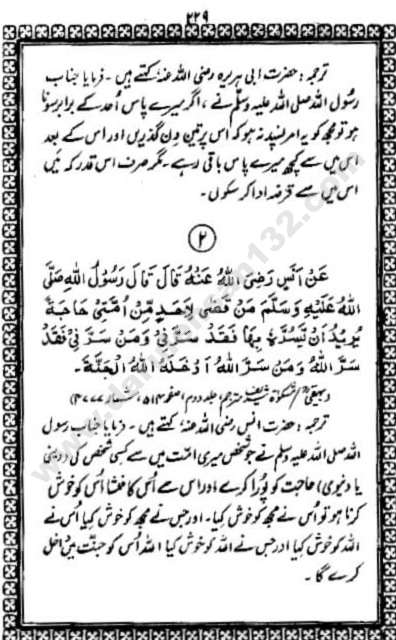 ۲۲۹
ترجمہ: حضرت ابی ہریرہ رضی اللہ عنہٗ کہتے ہیں ۔ فرمایا جناب
رسُول اللہ صلی اللہ علیہ وسلّم نے، اگر میرے پاس اُحد کے برابر سونا
ہو تو مجھ کو یہ امر پسند نہ ہو کہ اس پر تین دِن گذریں اور اس کے بعد
اس میں سے کچھ میرے پاس باقی رہے۔ مگر صرف اس قدر کہ مَیں
اس میں سے قرضہ ادا کر سکوں۔
۲
عَنْ اَنَسٍ رَضِیَ اللّٰہُ عَنْہُ قَالَ قَالَ رَسُوْلُ اللّٰہِ صَلَّی
اللّٰہُ عَلَیْہِ وَسَلَّمَ مَنْ قَضٰی لِاَحَدٍ مِّنْ اُمَّتِیْ حَاجَۃً
یُرِیْدُ اَنْ یَّسُرَّہٗ بِھَا فَقَدْ سَرَّنِیْ وَمَنْ سَرَّنِیْ فَقَدْ
سَرَّ اللّٰہَ وَمَنْ سَرَّ اللّٰہَ اَدْخَلَہُ اللّٰہُ الْجَنَّۃَ۔
(بیہقی / مشکوٰۃ شریف مترجم، جلد دوم، صفحہ ۵۱۴، شمار ۴۷۷۷)
ترجمہ: حضرت انس رضی اللہ عنہٗ کہتے ہیں ۔ فرمایا جناب رسول
اللہ صلی اللہ علیہ وسلّم نے جو شخص میری امّت میں سے کسی شخص کی (دینی
یا دنیوی) حاجت کو پُورا کرے اور اس سے اُس کا منشا اُس کو خوش
کرنا ہو تو اُس نے مجھ کو خوش کیا۔ اور جس نے مجھ کو خوش کیا اُس نے
اللہ کو خوش کیا اور جس نے اللہ کو خوش کیا اللہ اُس کو جنّت میں داخل
کرے گا ۔